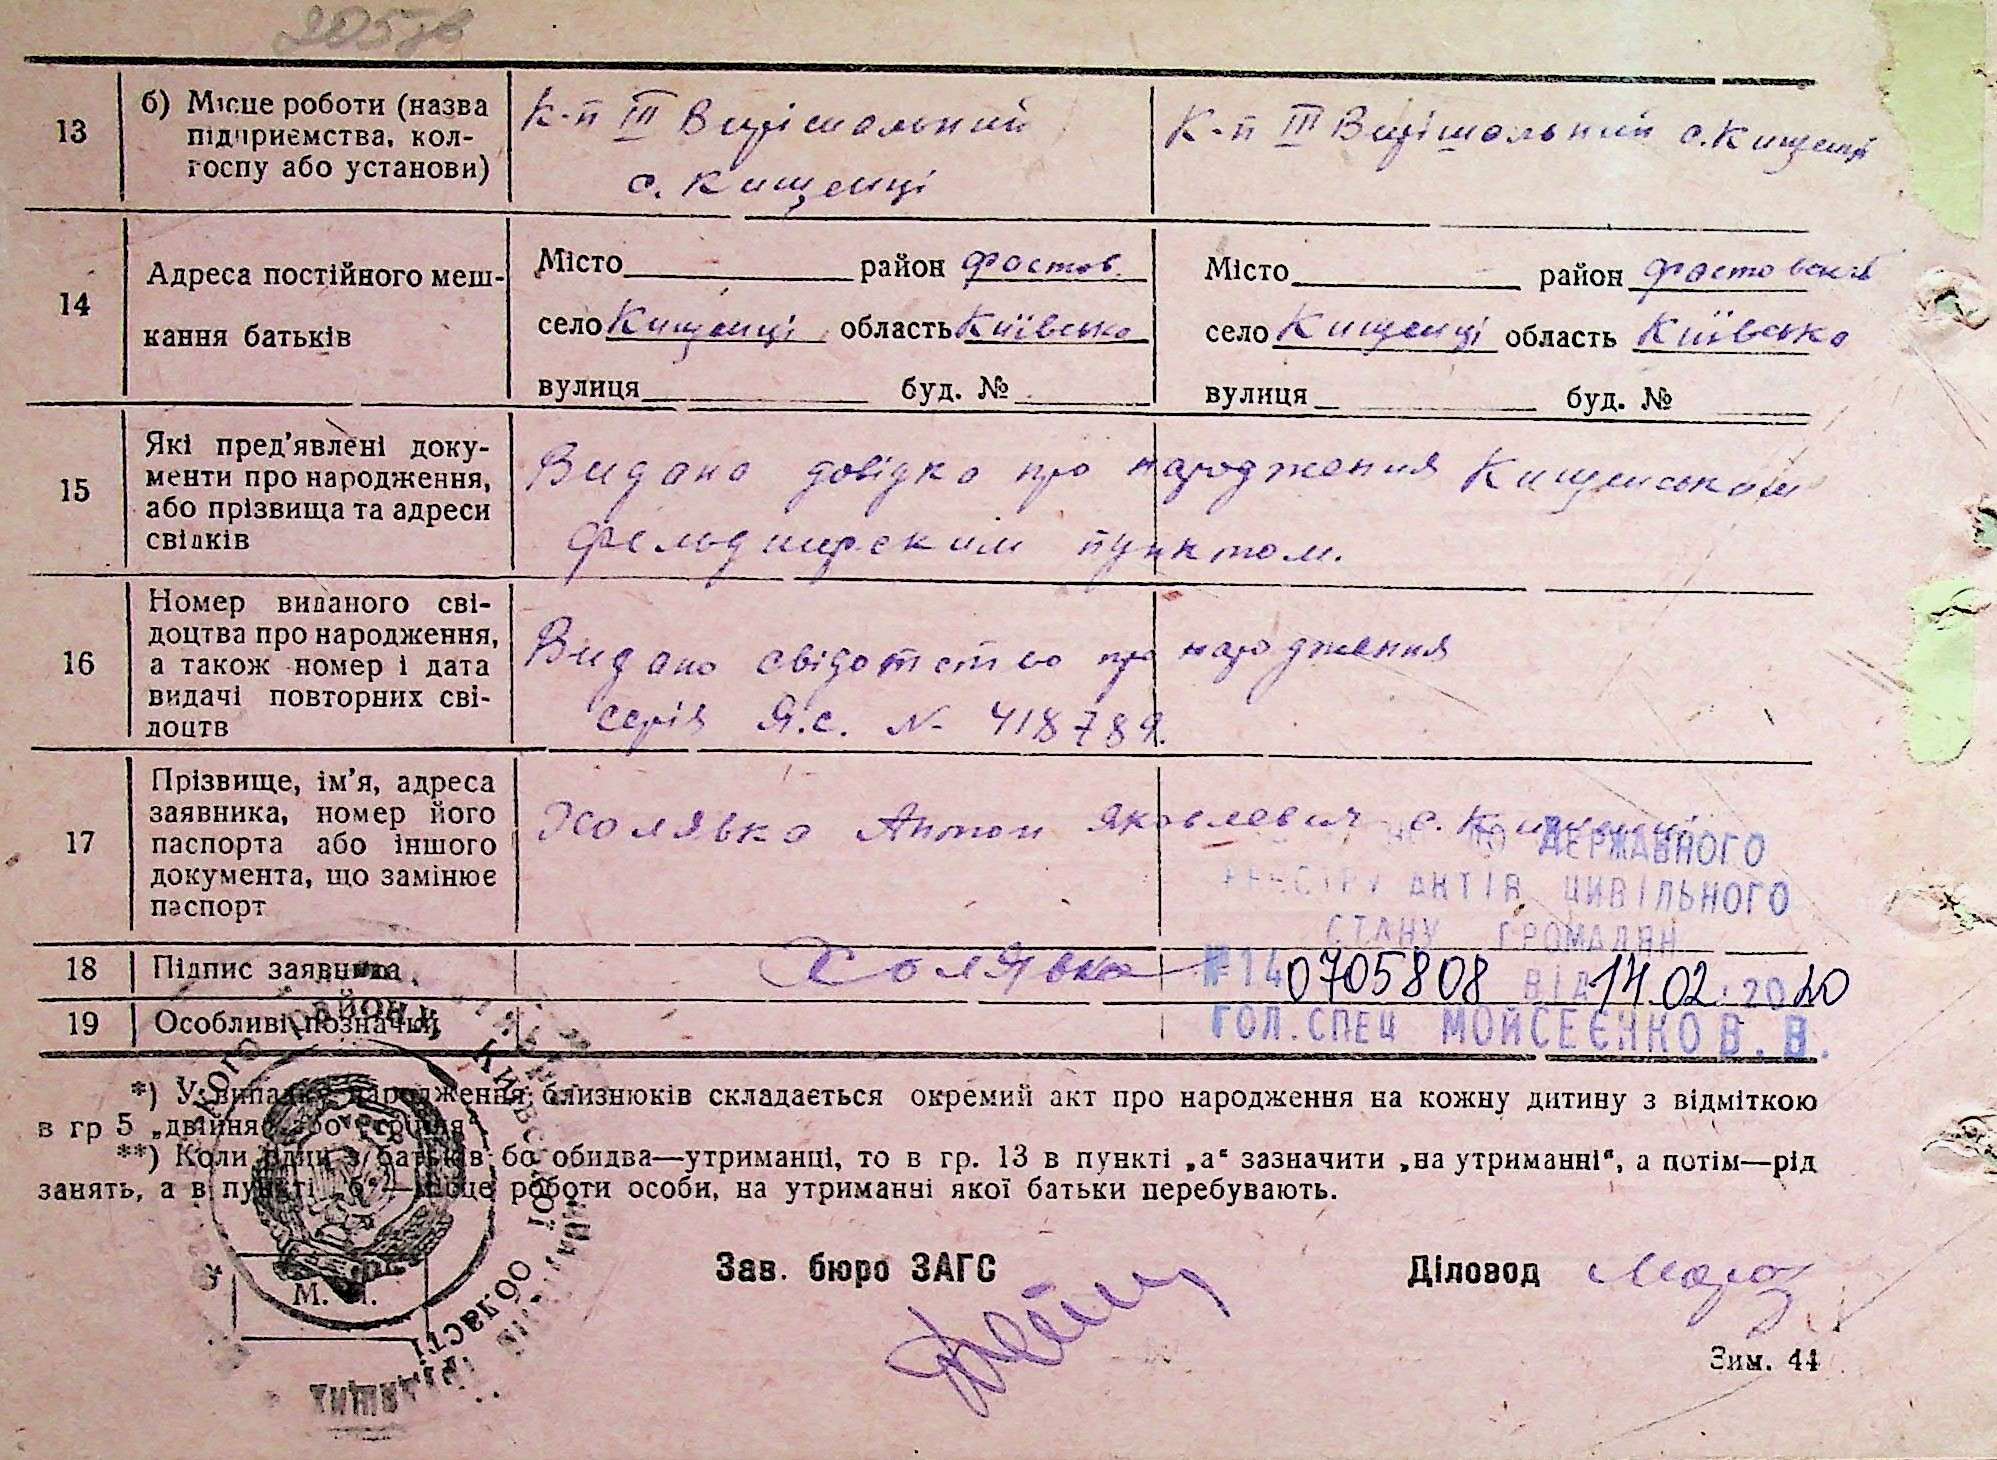 13
б) Місце роботи (назва
підприємства, кол-
госпу або установи)
К-п III Вирішальний
с. Кищенці
К-п III Вирішальний с. Кищенці
14
Адреса постійного меш-
кання батьків
Місто район Фастов.
село Кищенці область Київська
вулиця буд. №
Місто район Фастовськ
село Кищенці область Київська
вулиця буд. №
15
Які пред'явлені доку-
менти про народження,
або прізвища та адреси
свідків
Видана довідка про народження Кищенським
Фельдшерським пунктом.
16
Номер виданого сві-
доцтва про народження,
а також номер і дата
видачі повторних сві-
доцтв
Видано свідотство про народження
серія Я.с. № 418789.
17
Прізвище, ім'я, адреса
заявника, номер його
паспорта або іншого
документа, що замінює
паспорт
Холявко Антон Яковлевич с. Кищенці
ДЕРЖАВНОГО
РЕЄСТРУ АКТІВ ЦИВІЛЬНОГО
СТАНУ ГРОМАДЯН
№ 140705808 ВІД 14.02.2020
ГОЛ.СПЕЦ МОЙСЕЄНКО В.В.
18
Підпис заявника
Холявко
19
Особливі позначки
*) У випадку народження близнюків складається окремий акт про народження на кожну дитину з відміткою
в гр 5 „двійня" або „трійня"
**) Коли один з батьків бо обидва—утриманці, то в гр. 13 в пункті „а" зазначити „на утриманні", а потім—рід
занять, а в пункті „б"—місце роботи особи, на утриманні якої батьки перебувають.
району, Київської області
М. П.
Зав. бюро ЗАГС
Діловод
Зим. 44